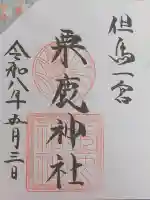 但馬一宮
粟鹿神社
令和八年五月三日